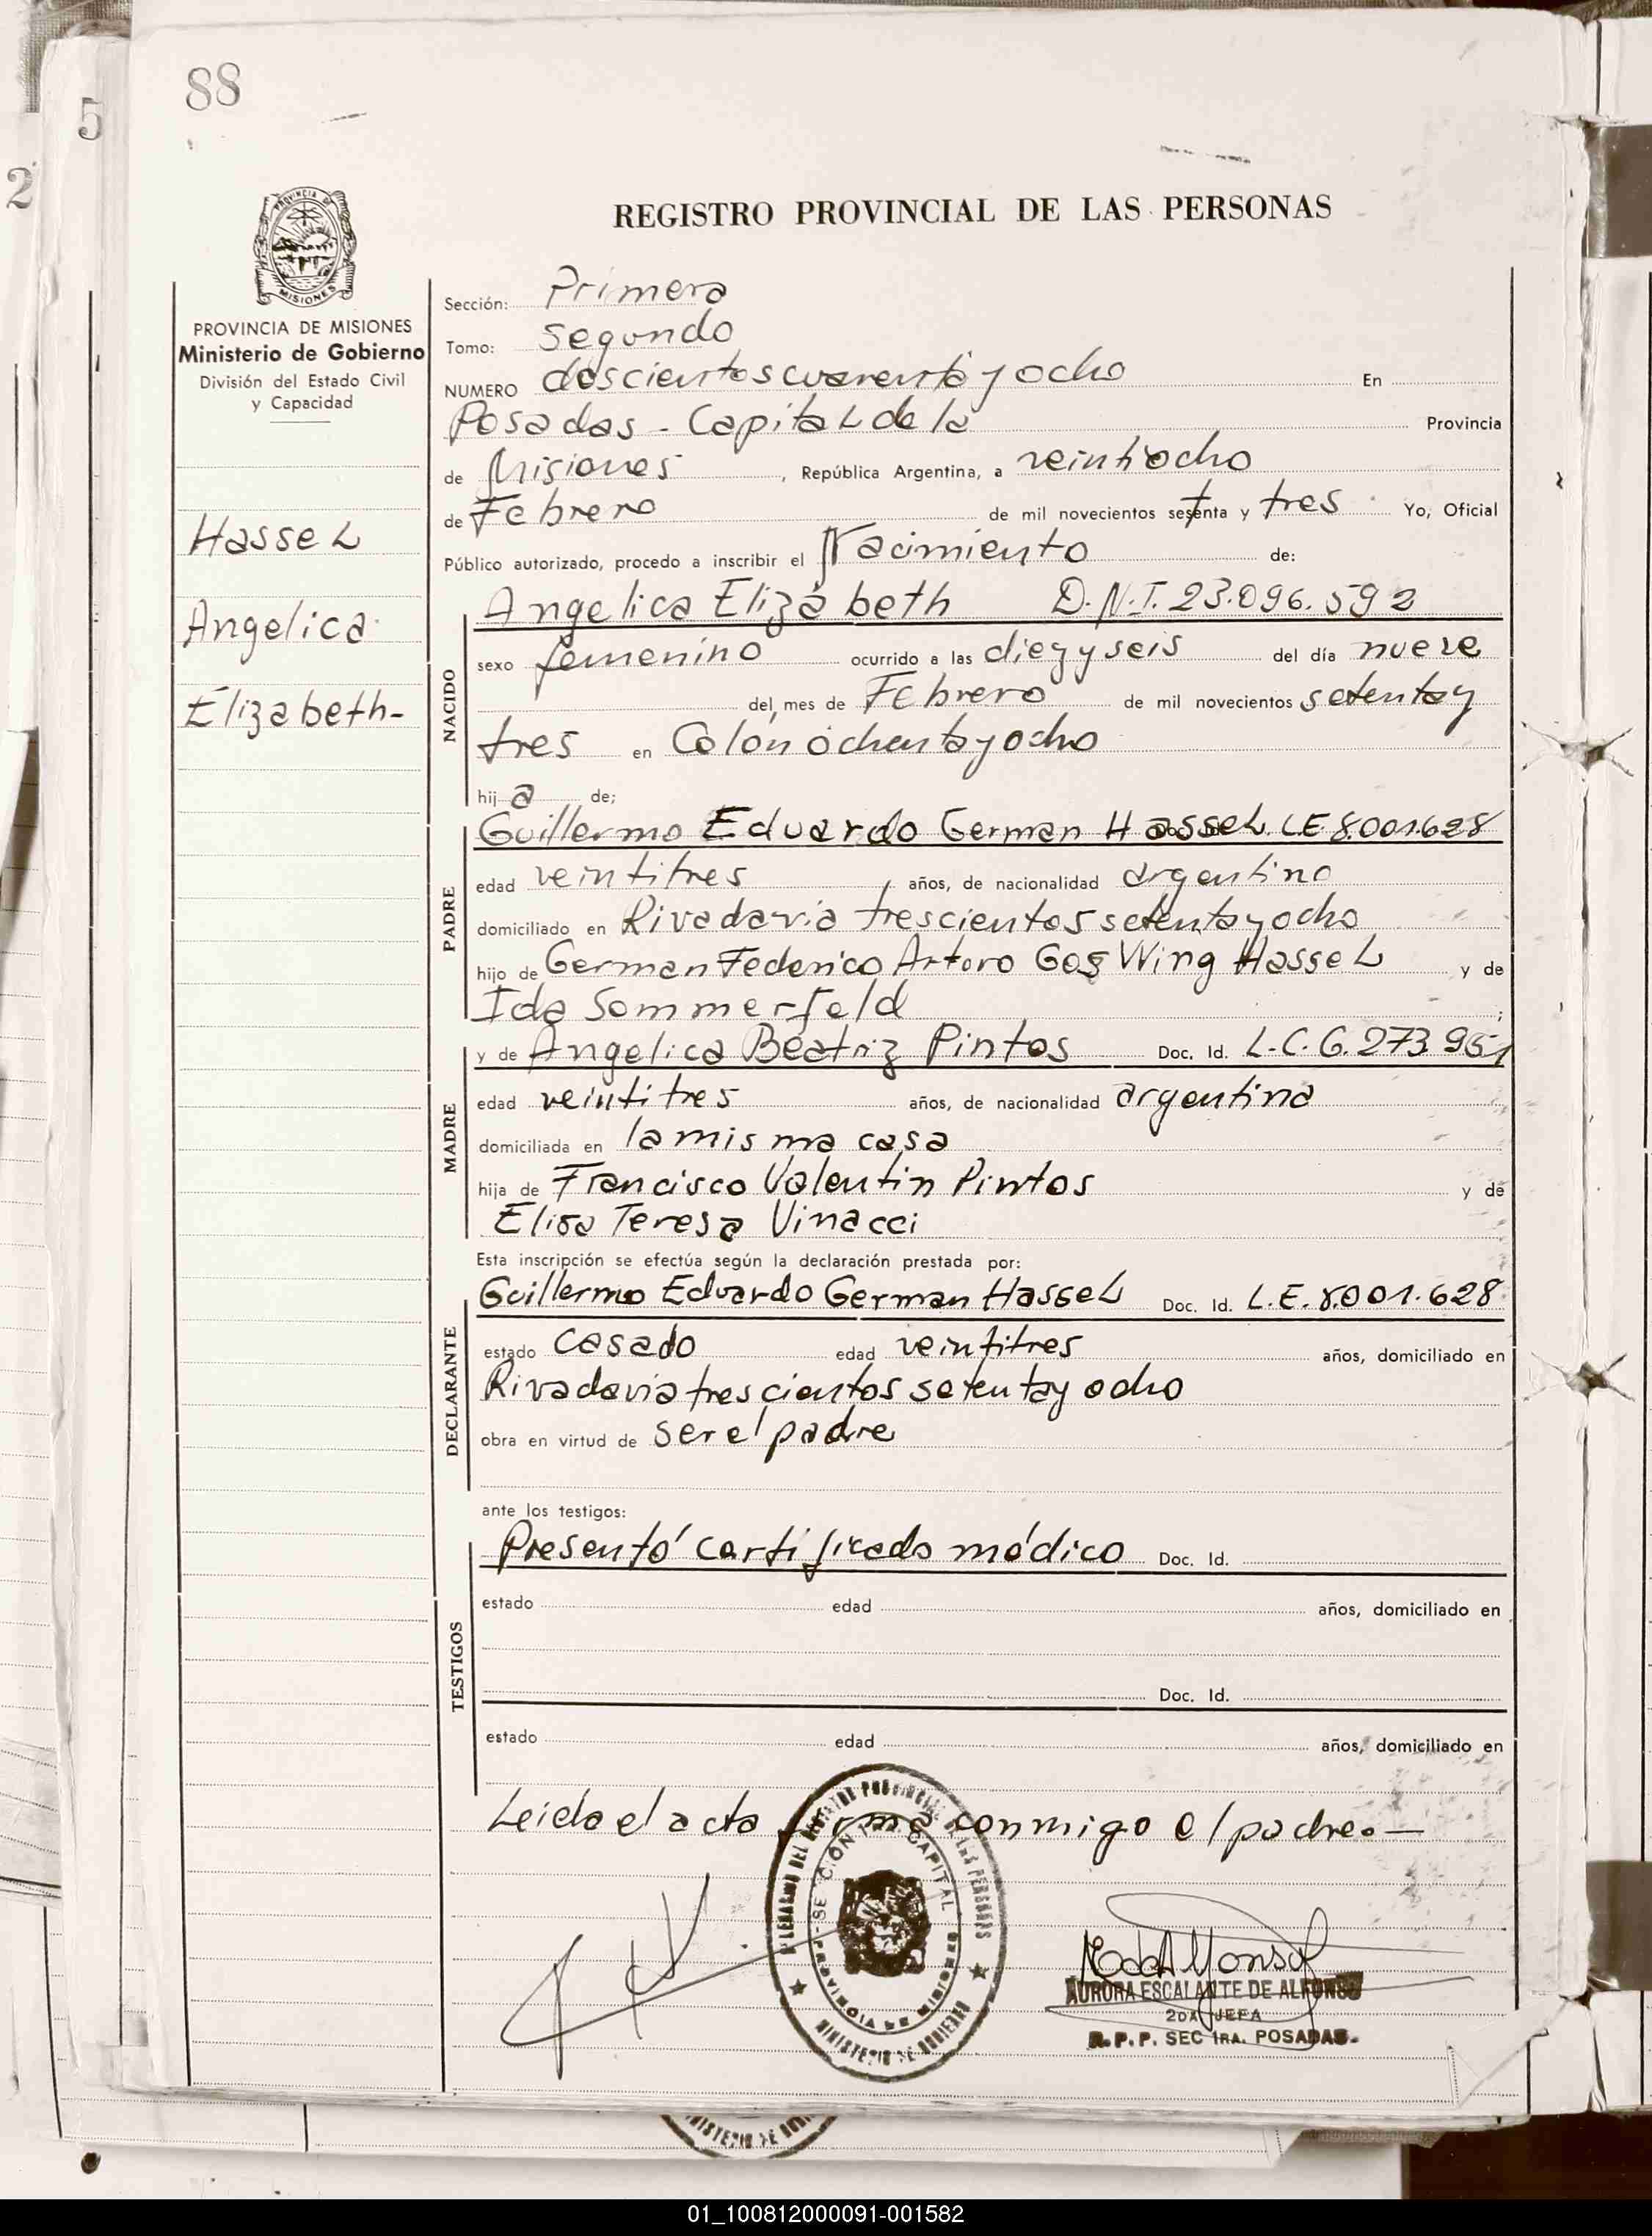 88
5
2
REGISTRO PROVINCIAL DE LAS PERSONAS
PROVINCIA DE MISIONES
PROVINCIA DE MISIONES
Ministerio de Gobierno
División del Estado Civil
y Capacidad
Hassel
Angelica
Elizabeth-
Sección: Primera
Tomo: segundo
NUMERO doscientos cuarenta y ocho En
Posadas - Capital de la Provincia
de Misiones, República Argentina, a veintiocho
de Febrero de mil novecientos setenta y tres Yo, Oficial
Público autorizado, procedo a inscribir el Nacimiento de:
NACIDO
Angelica Elizabeth D.N.I. 23.096.592
sexo femenino ocurrido a las diez y seis del día nueve
del mes de Febrero de mil novecientos setenta y
tres en Colón ochenta y ocho
hij a de;
PADRE
Guillermo Eduardo German Hassel LE 8.001.628
edad veintitres años, de nacionalidad argentino
domiciliado en Rivadavia trescientos setenta y ocho
hijo de German Federico Arturo Wing Hassel y de
Ida Sommerfeld ;
MADRE
y de Angelica Beatriz Pintos Doc. Id. L.C. 6.273.951
edad veintitres años, de nacionalidad argentina
domiciliada en la misma casa
hija de Francisco Valentin Pintos y de
Elisa Teresa Vinacci
Esta inscripción se efectúa según la declaración prestada por:
DECLARANTE
Guillermo Eduardo German Hassel Doc. Id. L.E. 8.001.628
estado casado edad veintitres años, domiciliado en
Rivadavia trescientos setenta y ocho
obra en virtud de ser el padre
ante los testigos:
TESTIGOS
Presentó certificado médico Doc. Id.
estado edad años, domiciliado en
Doc. Id.
estado edad años, domiciliado en
Leida el acta firma conmigo el padre.—
SECCIÓN CAPITAL
PROVINCIA DE MISIONES
MINISTERIO DE GOBIERNO
AURORA ESCALANTE DE ALFONSO
2DA JEFA
R.P.P. SEC 1RA. POSADAS.
01_100812000091-001582